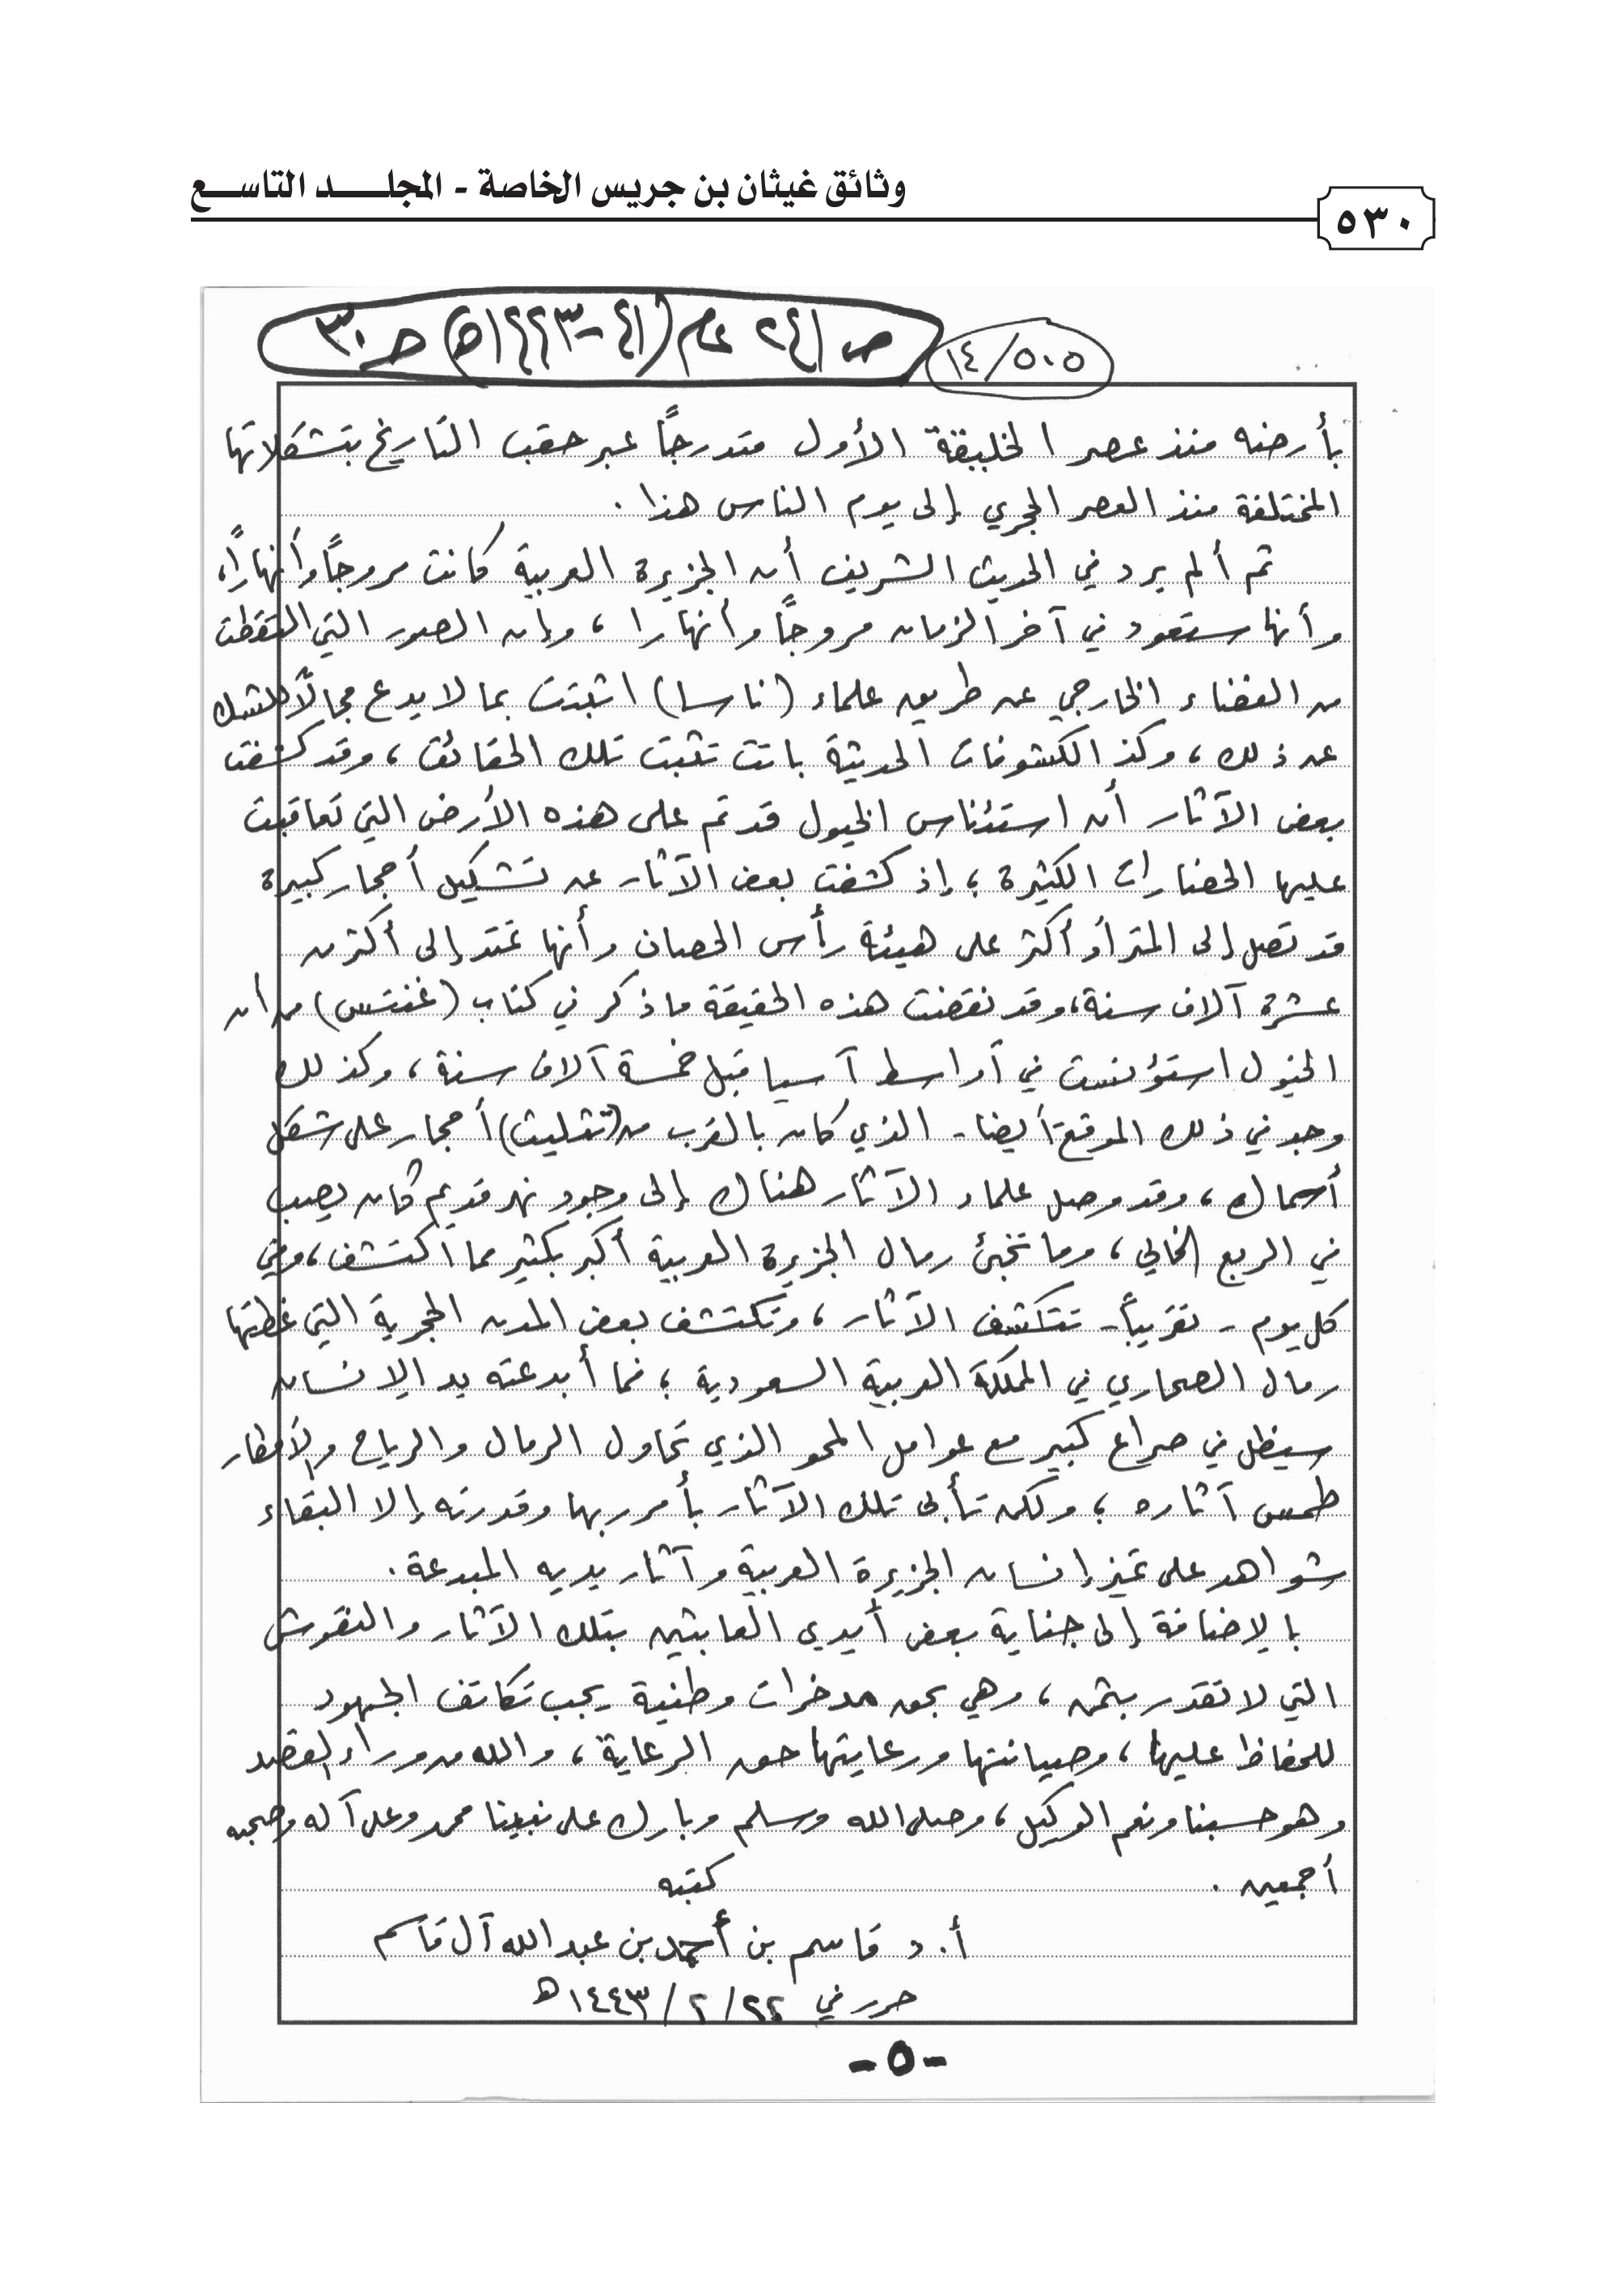 وثائق غيثان بن جريس الخاصة - المجلـــد التاســـع
٥٣٠
١٤/٥٠٥
بأرضه منذ عصر الخليقة الأول متدرجًا عبر حقب التاريخ بتشكلاتها
المختلفة منذ العصر الحجري إلى يوم الناس هذا .
ثم ألم يرد في الحديث الشريف أن الجزيرة العربية كانت مروجًا وأنهارًا،
وأنها ستعود في آخر الزمان مروجًا وأنهارا ، وإن الصور التي التقطت
من الفضاء الخارجي عن طريق علماء (ناسا) اثبتت بما لا يدع مجالًا للشك
عن ذلك ، وكذ الكشوفات الحديثة باتت تثبت تلك الحقائق ، وقد كشفت
بعض الآثار أن استئناس الخيول قد تم على هذه الأرض التي تعاقبت
عليها الحضارات الكثيرة ؛ إذ كشفت بعض الآثار عن تشكيل أحجار كبيرة
قد تصل إلى المتر أو أكثر على هيئة رأس الحصان وأنها تمتد إلى أكثر من
عشرة آلاف سنة، وقد نقضت هذه الحقيقة ما ذكر في كتاب (غنتس) من أن
الخيول استؤنست في أواسط آسيا قبل خمسة آلاف سنة ، وكذلك
وجد في ذلك الموقع أيضا - الذي كان بالقرب من (تثليث) أحجار على شكل
أسماك ، وقد وصل علماء الآثار هناك إلى وجود نهر قديم كان يصب
في الربع الخالي ، وما تخبئ رمال الجزيرة العربية أكبر بكثير مما اكتشف ، وفي
كل يوم - تقريبًا - تتكشف الآثار ، وتكتشف بعض المدن الحجرية التي غطتها
رمال الصحاري في المملكة العربية السعودية ؛ فما أبدعته يد الإنسان
سيظل في صراع كبير مع عوامل المحو الذي تحاول الرمال والرياح والأمطار
طمس آثاره ؛ ولكن تأبى تلك الآثار بأمر ربها وقدرته إلا البقاء
شواهد على تميز إنسان الجزيرة العربية وآثار يديه المبدعة .
بالإضافة إلى جناية بعض أيدي العابثين بتلك الآثار والنقوش
التي لا تقدر بثمن ، وهي بحق مدخرات وطنية يجب تكاتف الجهود
للحفاظ عليها ، وصيانتها ورعايتها حق الرعاية ، والله من وراء القصد
وهو حسبنا ونعم الوكيل ، وصلى الله وسلم وبارك على نبينا محمد وعلى آله وصحبه
أجمعين .
كتبه
أ. د قاسم بن أحمد بن عبد الله آل قاسم
حرر في ٢٢/ ٢/ ١٤٤٣هـ
-٥-